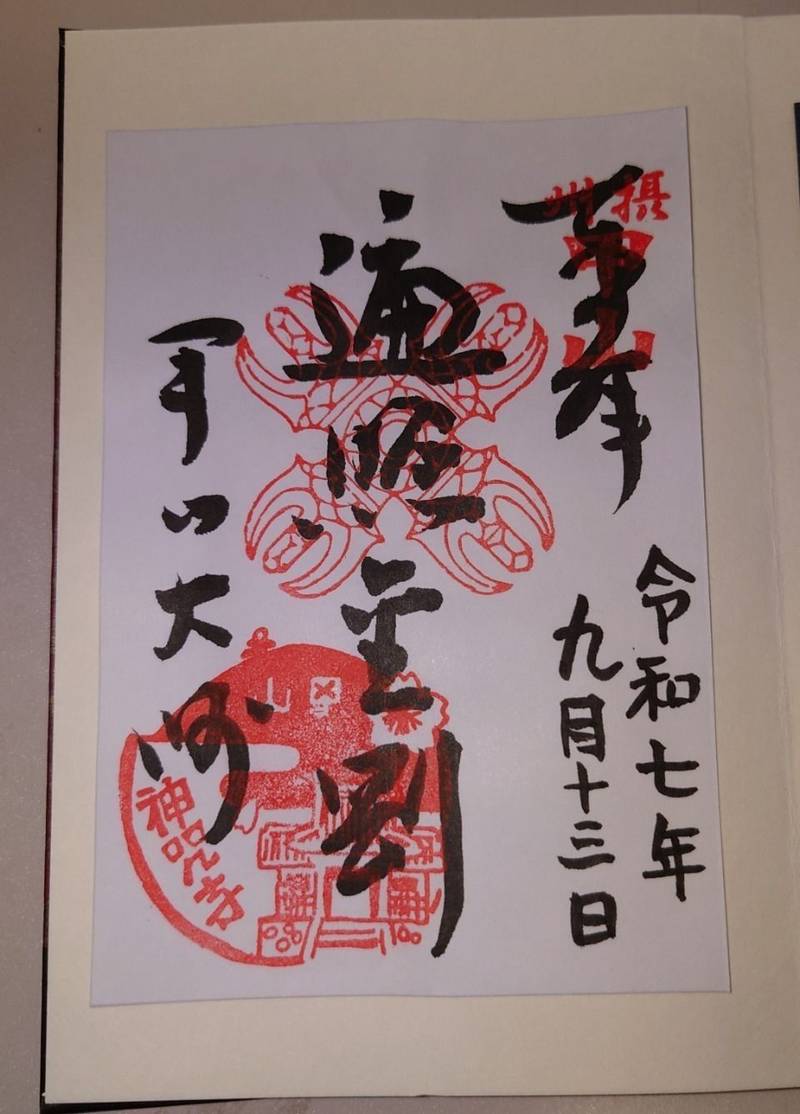 奉拝
摂州
甲山
令和七年
九月十三日
遍照金剛
甲山大師
神呪寺